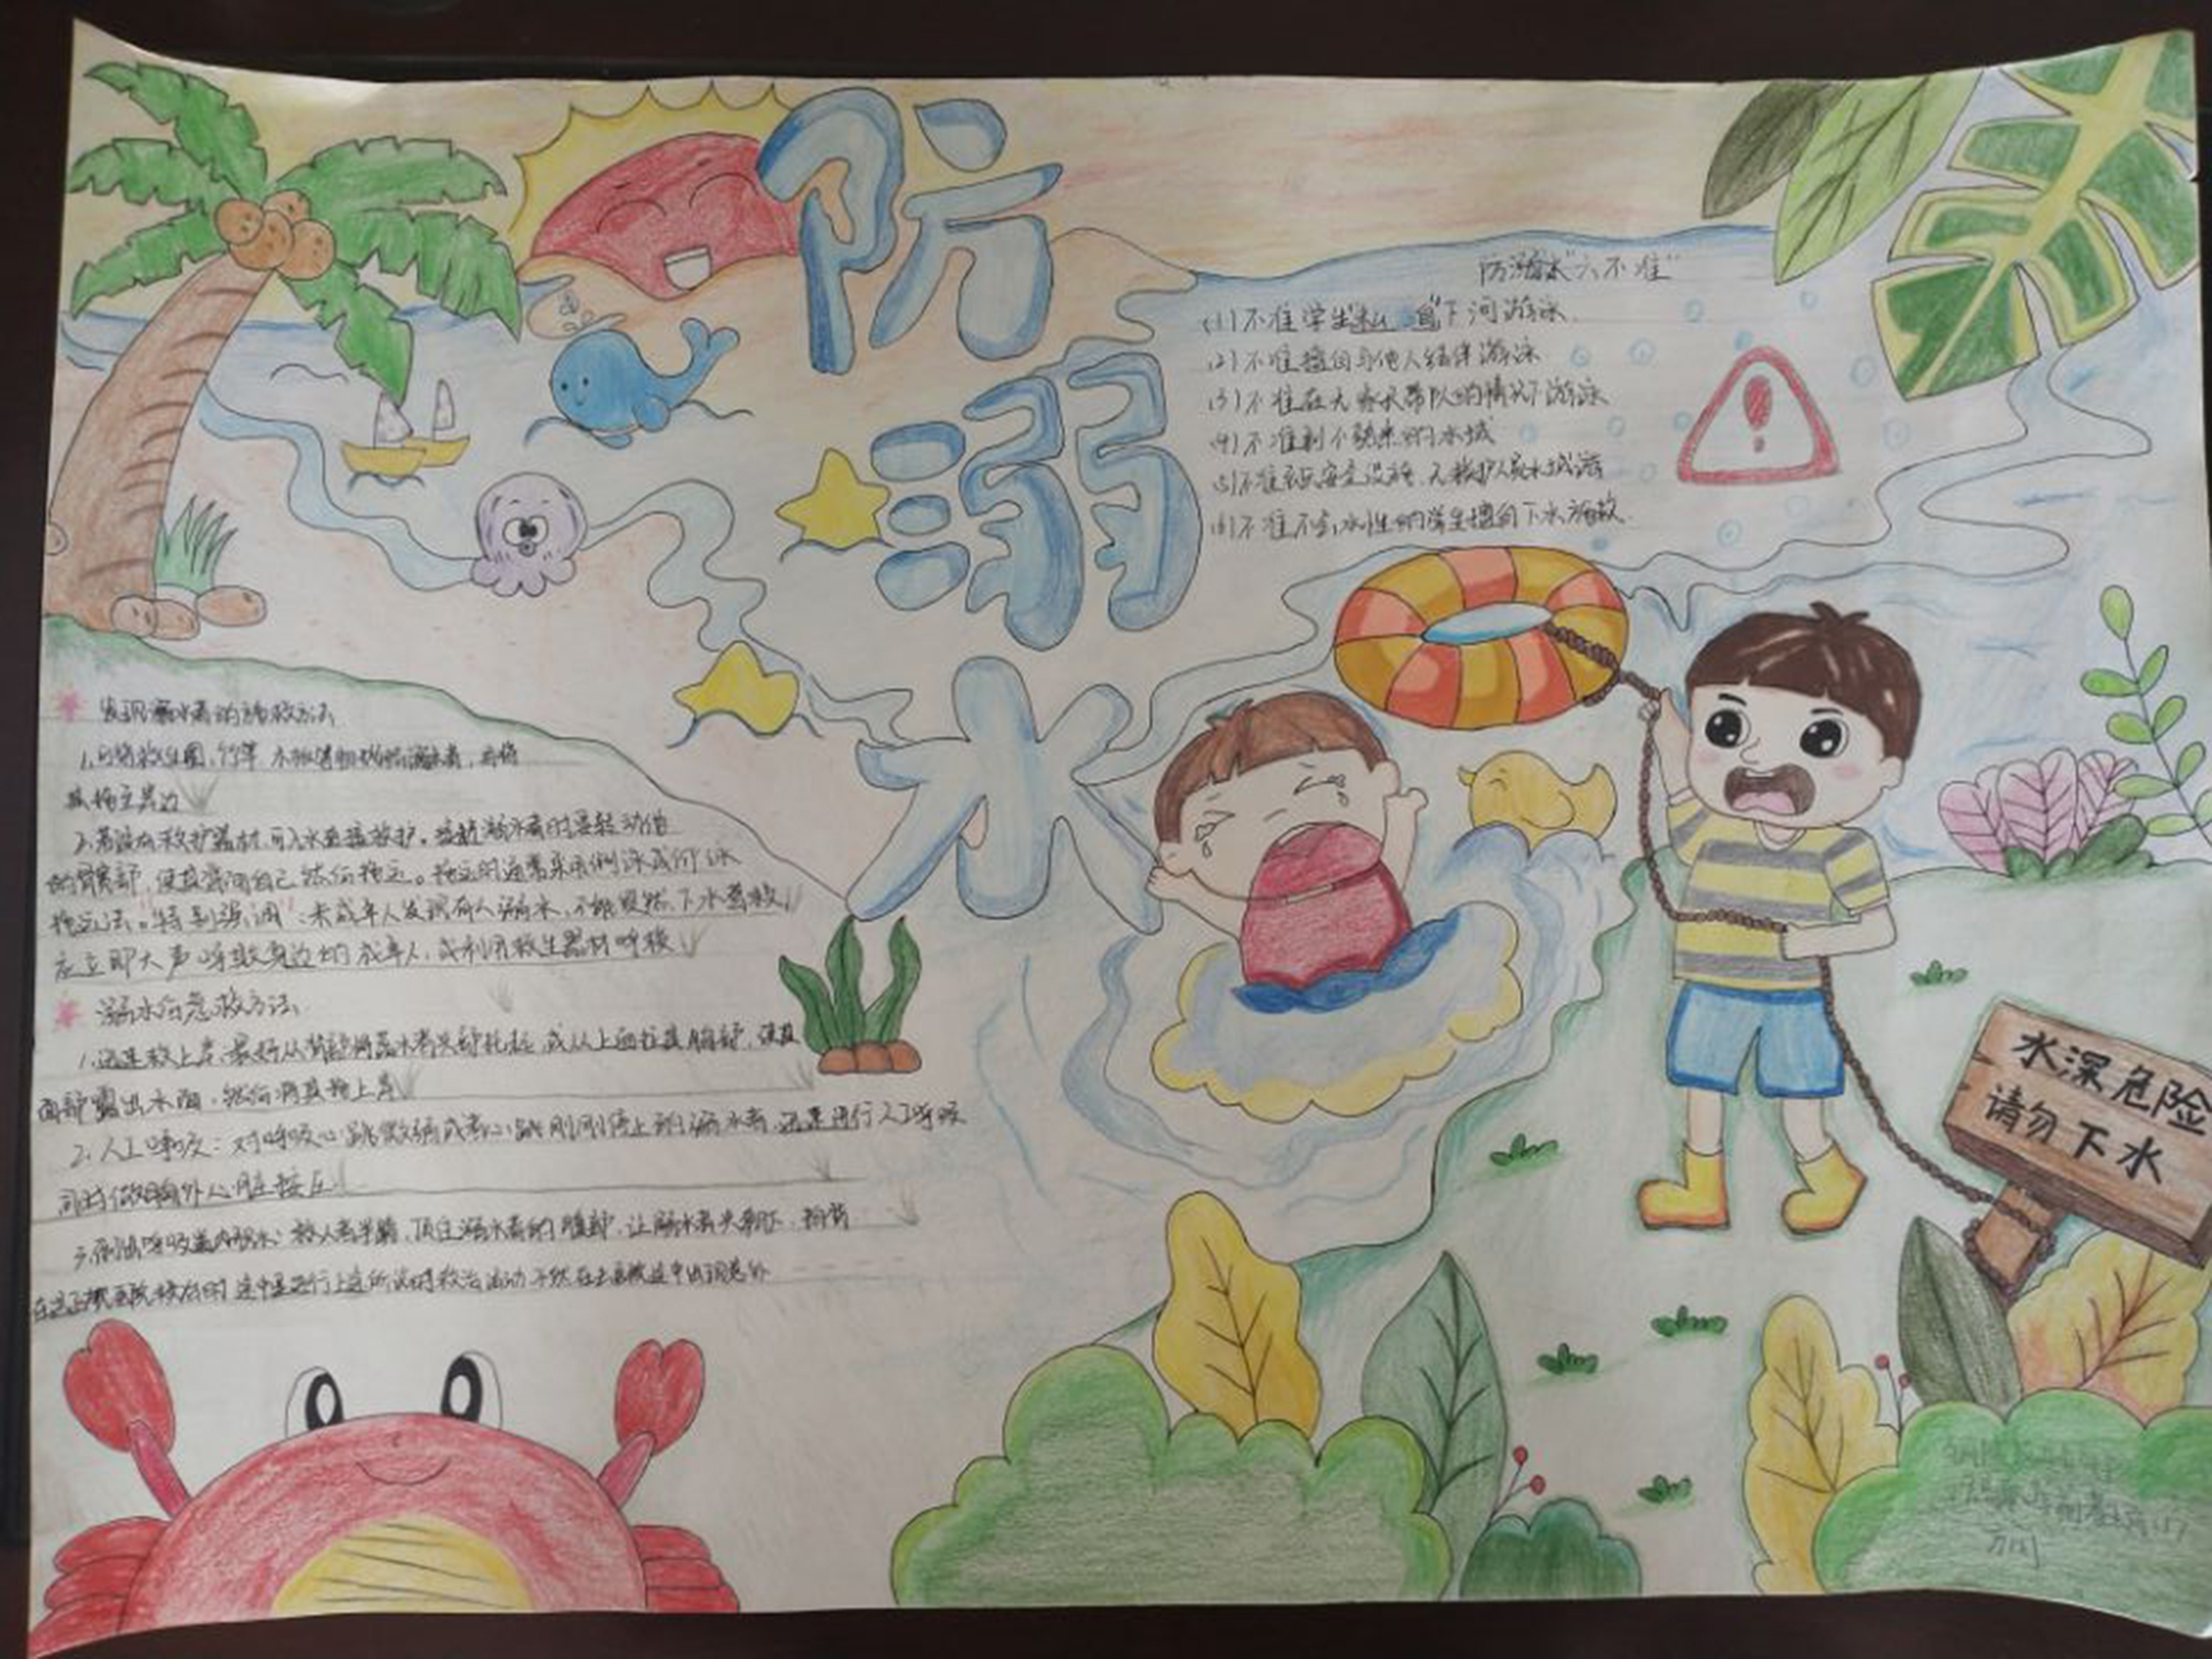 防溺水
防溺水"六不准"
(1)不准学生私自下河游泳
(2)不准擅自与他人结伴游泳
(3)不准在无家长带队的情况下游泳
(4)不准到不熟悉的水域
(5)不准到无安全设施、无救护人员水域游
(6)不准不会水性的学生擅自下水施救.
发现溺水者的施救方法
1.可将救生圈、竹竿、木板等物抛给溺水者,再将
其拖至岸边
2.若没有救护器材,可入水直接救护。接近溺水者时要转动他
的髋部,使其背向自己然后拖运。拖运时通常采用侧泳或仰泳
拖运法。"特别强调":未成年人发现有人溺水,不能贸然下水营救,
应立即大声呼救身边的成年人,或利用救生器材呼救
溺水后急救方法
1.迅速救上岸:最好从背部将溺水者头部托起,或从上面拉其胸部,使其
面部露出水面,然后将其拖上岸
2.人工呼吸:对呼吸心跳微弱或者心跳刚刚停止的溺水者,迅速进行人工呼吸
同时做胸外心脏按压
3.倒出呼吸道内积水:救人者半跪,顶住溺水者的腹部,让溺水者头朝下,拍背
水深危险
请勿下水